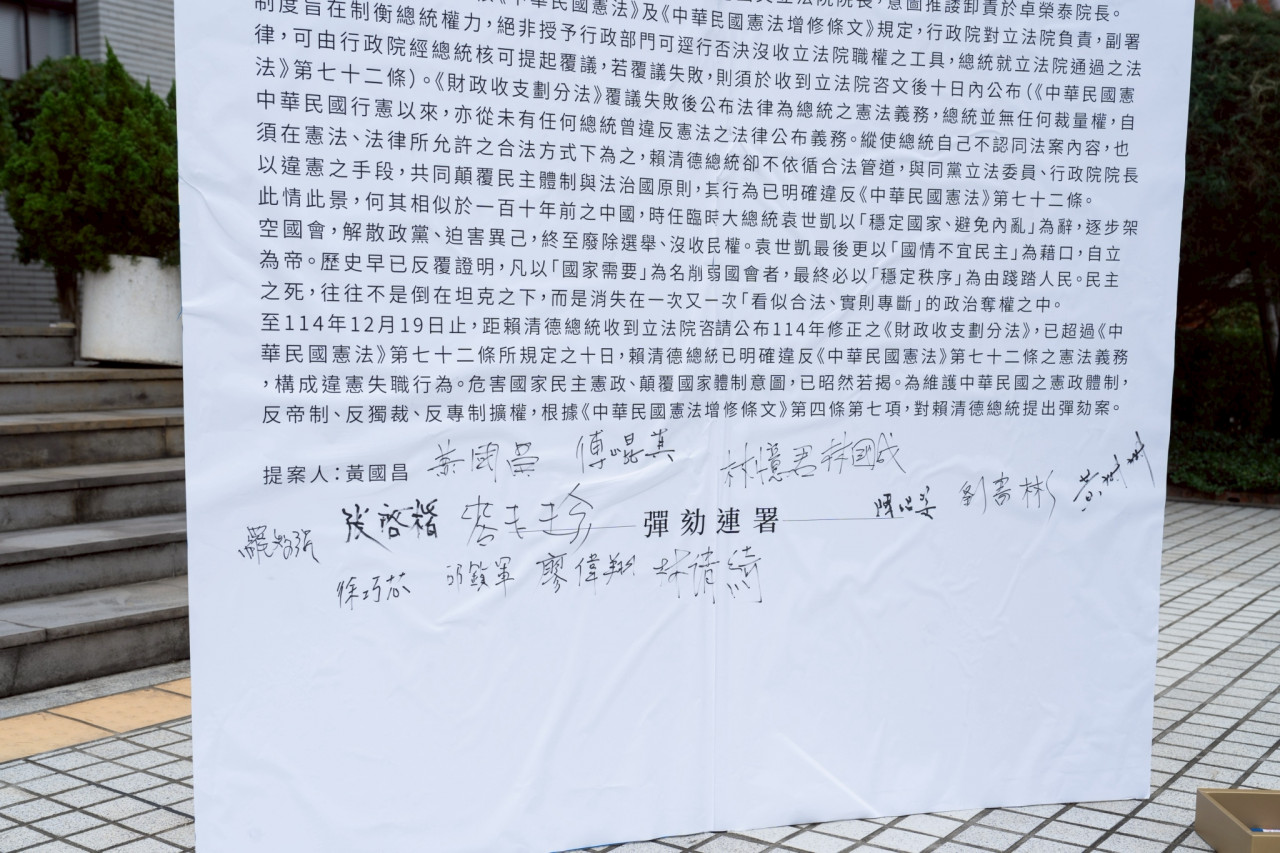 《中華民國憲法》及《中華民國憲法增修條文》規定,行政院對立法院負責,副署
制度旨在制衡總統權力,絕非授予行政部門可逕行否決沒收立法院職權之工具,總統就立法院通過之法
律,可由行政院經總統核可提起覆議,若覆議失敗,則須於收到立法院咨文後十日內公布(《中華民國憲
法》第七十二條)。《財政收支劃分法》覆議失敗後公布法律為總統之憲法義務,總統並無任何裁量權,自
中華民國行憲以來,亦從未有任何總統曾違反憲法之法律公布義務。縱使總統自己不認同法案內容,也
須在憲法、法律所允許之合法方式下為之,賴清德總統卻不依循合法管道,與同黨立法委員、行政院院長
以違憲之手段,共同顛覆民主體制與法治國原則,其行為已明確違反《中華民國憲法》第七十二條。
此情此景,何其相似於一百十年前之中國,時任臨時大總統袁世凱以「穩定國家、避免內亂」為辭,逐步架
空國會,解散政黨、迫害異己,終至廢除選舉、沒收民權。袁世凱最後更以「國情不宜民主」為藉口,自立
為帝。歷史早已反覆證明,凡以「國家需要」為名削弱國會者,最終必以「穩定秩序」為由踐踏人民。民主
之死,往往不是倒在坦克之下,而是消失在一次又一次「看似合法、實則專斷」的政治奪權之中。
至114年12月19日止,距賴清德總統收到立法院咨請公布114年修正之《財政收支劃分法》,已超過《中
華民國憲法》第七十二條所規定之十日,賴清德總統已明確違反《中華民國憲法》第七十二條之憲法義務
,構成違憲失職行為。危害國家民主憲政、顛覆國家體制意圖,已昭然若揭。為維護中華民國之憲政體制,
反帝制、反獨裁、反專制擴權,根據《中華民國憲法增修條文》第四條第七項,對賴清德總統提出彈劾案。
提案人:黃國昌 黃國昌 傅崐萁 林憶君 林國成
羅智強 張啓楷 麥玉珍 彈劾連署 陳菁徽 劉書彬
徐巧芯 邱鎮軍 廖偉翔 林倩綺